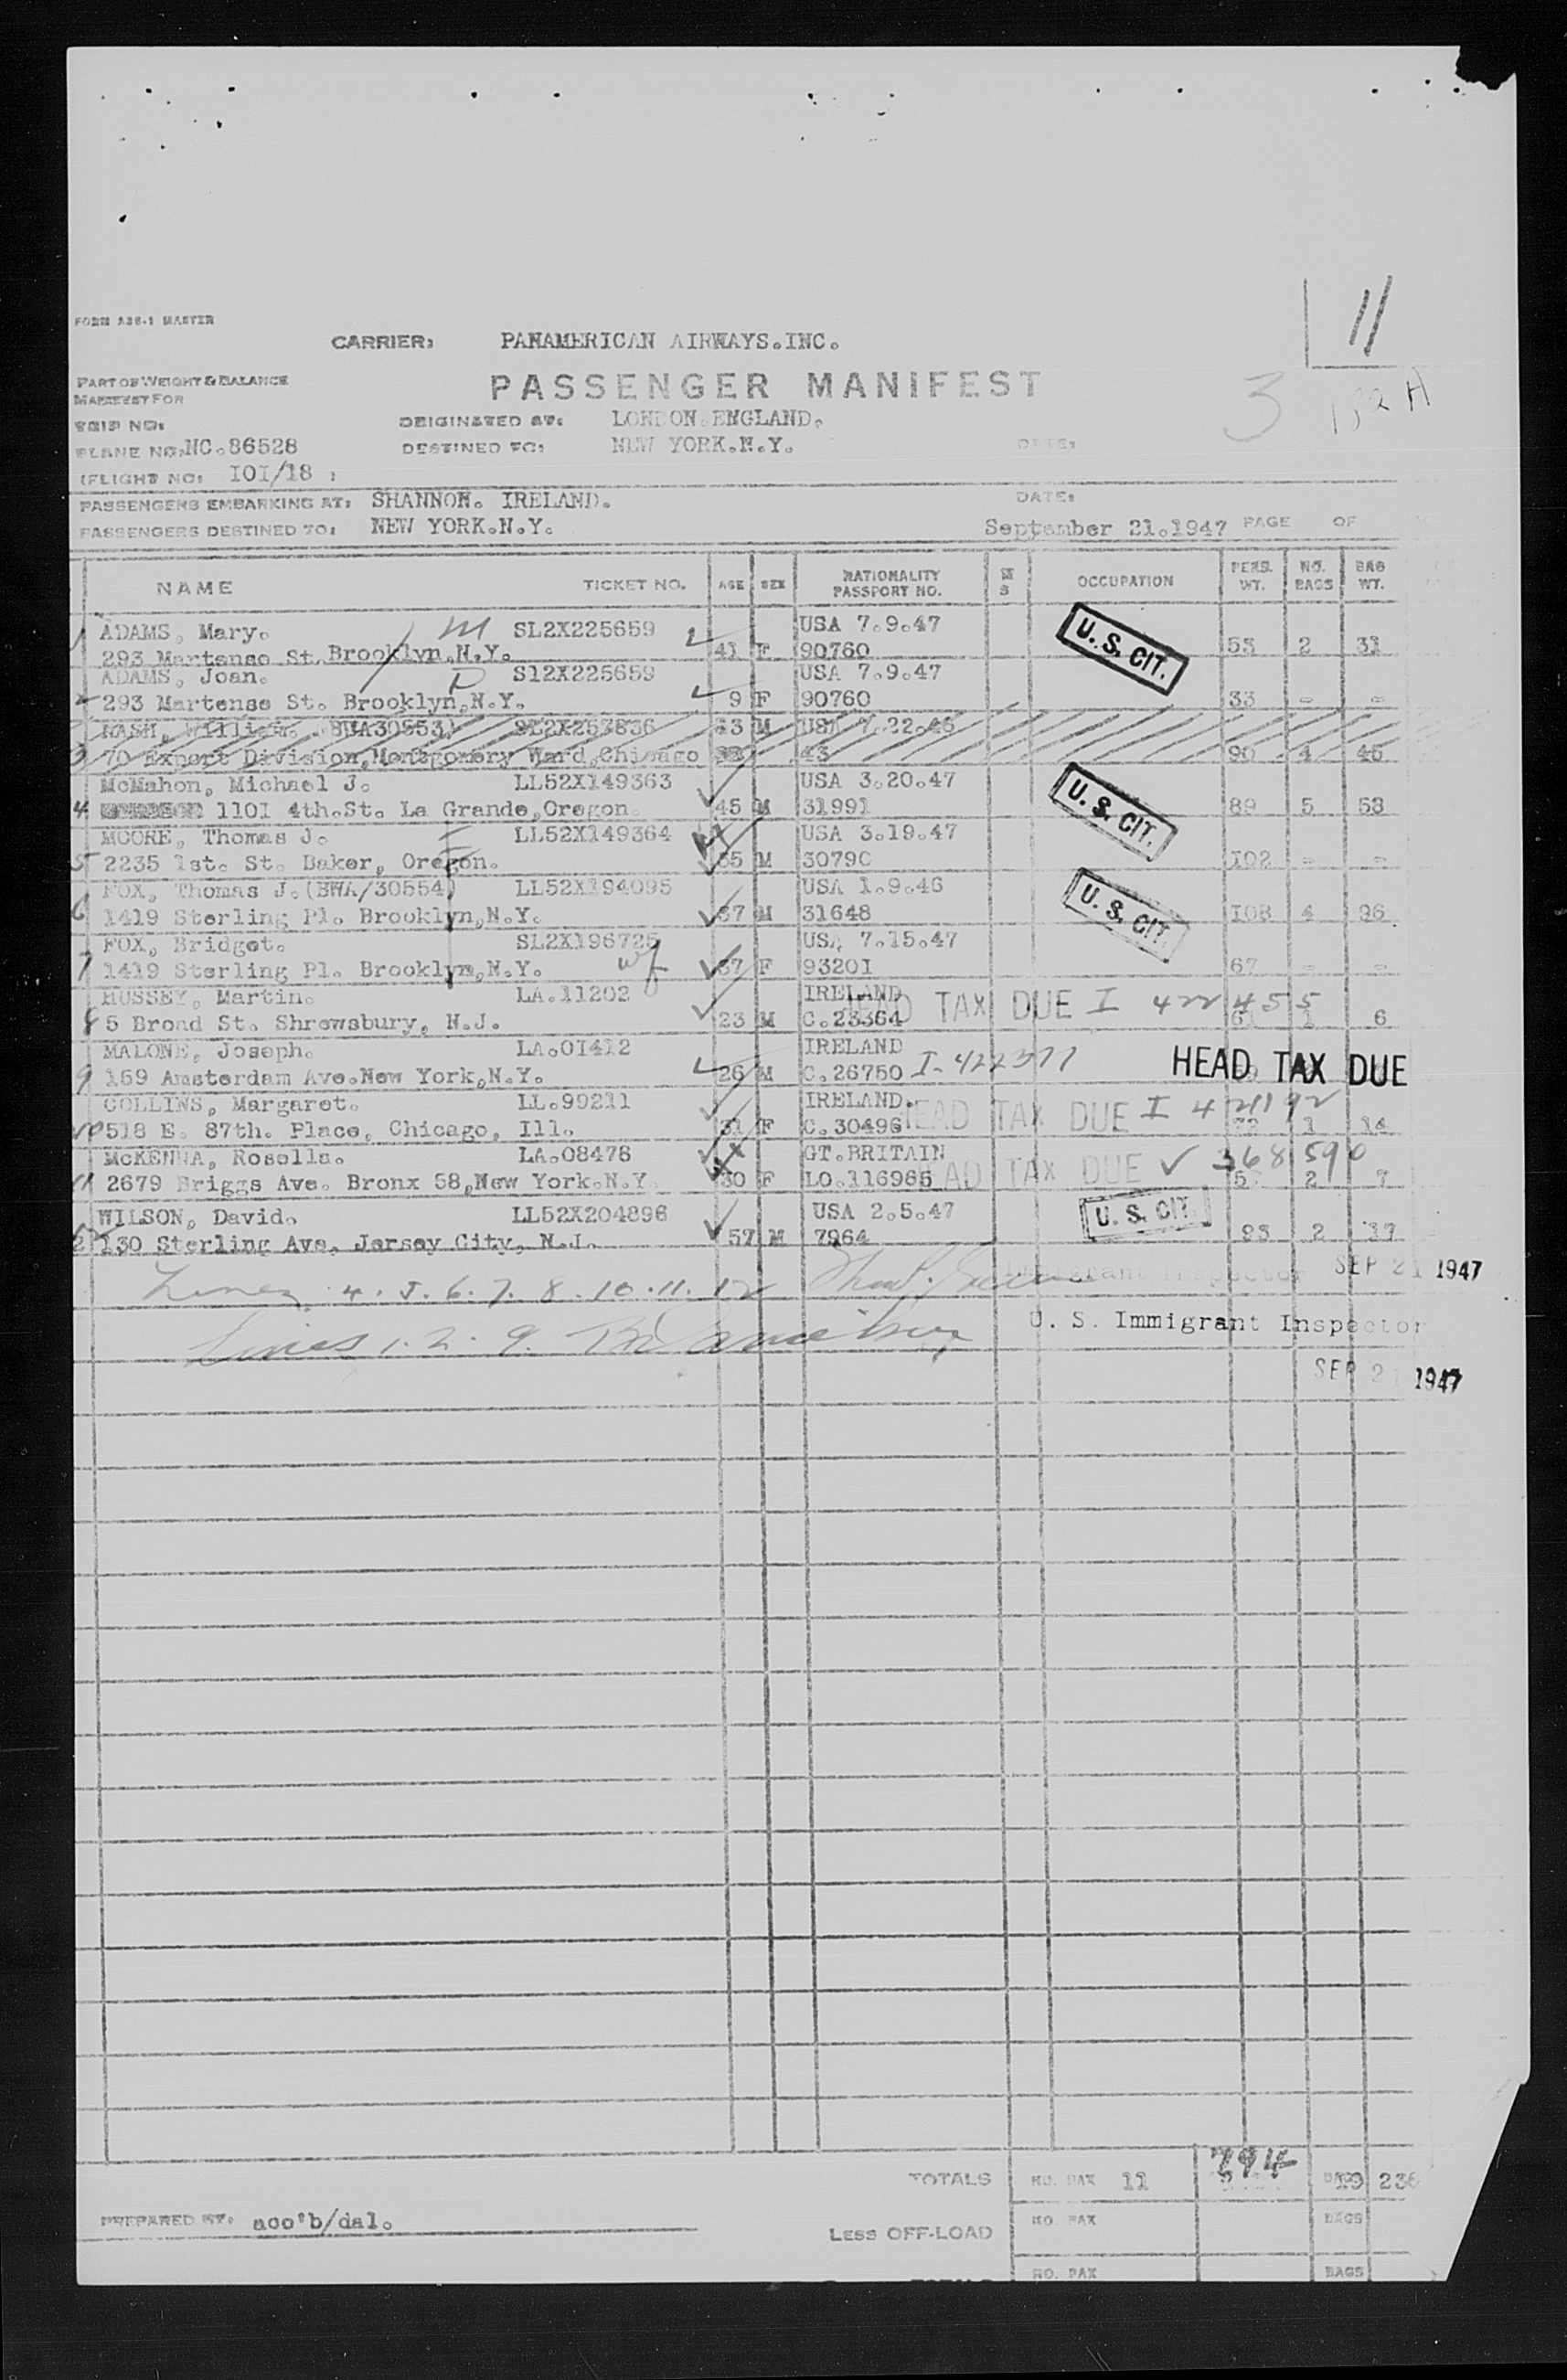 11
FORM A36-1 MASTER
CARRIER: PANAMERICAN AIRWAYS.INC.
PART OF WEIGHT & BALANCE
MANIFEST FOR
PASSENGER MANIFEST
3
TRIP NO:
ORIGINATED AT: LONDON.ENGLAND.
PLANE NO: NC.86528
DESTINED TO: NEW YORK.N.Y.
DATE:
(FLIGHT NO: I0I/18 :
PASSENGERS EMBARKING AT: SHANNON. IRELAND.
DATE:
PASSENGERS DESTINED TO: NEW YORK.N.Y.
September 21.1947 PAGE OF
NAME TICKET NO. AGE SEX NATIONALITY PASSPORT NO. OCCUPATION PERS. WT. NO. BAGS BAG WT.
ADAMS, Mary. M SL2X225659 USA 7.9.47 U.S. CIT.
1 293 Martense St.Brooklyn,N.Y. 41 F 90760 53 2 31
ADAMS, Joan. D S12X225659 USA 7.9.47
2 293 Martense St. Brooklyn,N.Y. 9 F 90760 33 - -
NASH, William. (BWA30553) SL2X257836 33 M USA 7.22.46
3 70 Export Division,Montgomery Ward,Chicago 43 90 4 45
McMahon, Michael J. LL52X149363 USA 3.20.47 U.S. CIT.
4 1101 4th.St. La Grande,Oregon. 45 M 31991 89 5 53
MOORE, Thomas J. LL52X149364 USA 3.19.47
5 2235 1st. St. Baker, Oregon. 35 M 30790 I02 - -
FOX, Thomas J.(BWA/30554) LL52X194095 USA 1.9.46 U.S. CIT.
6 1419 Sterling Pl. Brooklyn,N.Y. 37 M 31648 I08 4 96
FOX, Bridget. SL2X196725 USA 7.15.47
7 1419 Sterling Pl. Brooklyn,N.Y. wf 37 F 9320I 67 - -
HUSSEY, Martin. LA.11202 IRELAND HEAD TAX DUE I 422455
8 5 Broad St. Shrewsbury, N.J. 23 M C.23364 61 1 6
MALONE, Joseph. LA.0I412 IRELAND
9 159 Amsterdam Ave.New York,N.Y. 26 M C.26750 I-422377 HEAD TAX DUE
COLLINS, Margaret. LL.99211 IRELAND. HEAD TAX DUE I 421192
10 518 E. 87th. Place, Chicago, Ill. 31 F C.30496 1 14
McKENNA, Rosella. LA.08478 GT.BRITAIN HEAD TAX DUE V 368590
11 2679 Briggs Ave. Bronx 58,New York.N.Y. 30 F LO.116985 2 7
WILSON, David. LL52X204896 USA 2.5.47 U.S. CIT.
12 130 Sterling Ave. Jersey City, N.J. 57 M 7964 93 2 37
Lines 4.5.6.7.8.10.11.12 Immigrant Inspector SEP 21 1947
U. S. Immigrant Inspector
Lines 1.2.9.
SEP 21 1947
TOTALS NO. PAX 11 794 BAGS 19 236
PREPARED BY: aoo'b/dal.
LESS OFF-LOAD NO. PAX BAGS
NO. PAX BAGS